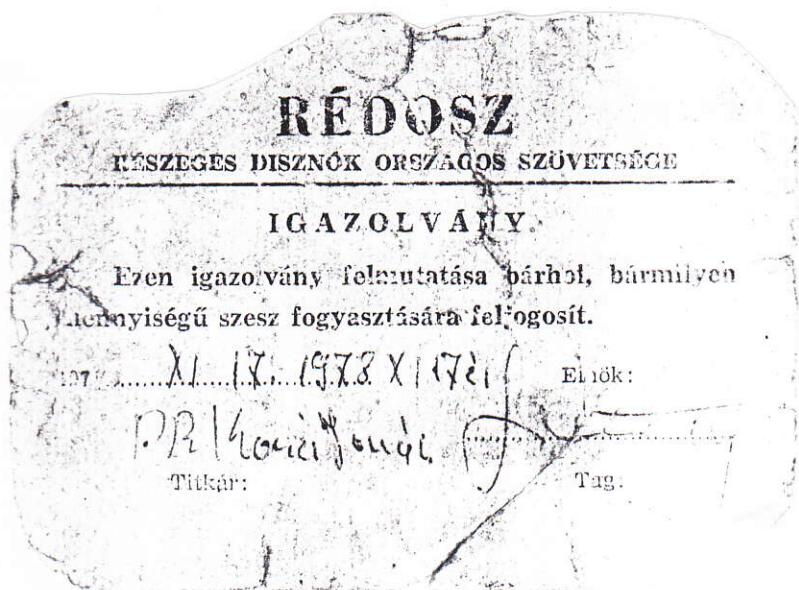 RÉDOSZ
RÉSZEGES DISZNÓK ORSZÁGOS SZÖVETSÉGE
IGAZOLVÁNY.
Ezen igazolvány felmutatása bárhol, bármilyen
mennyiségű szesz fogyasztására feljogosít.
197 XI. 17. 1978 XI 17 Elnök:
DR
Titkár: Tag: